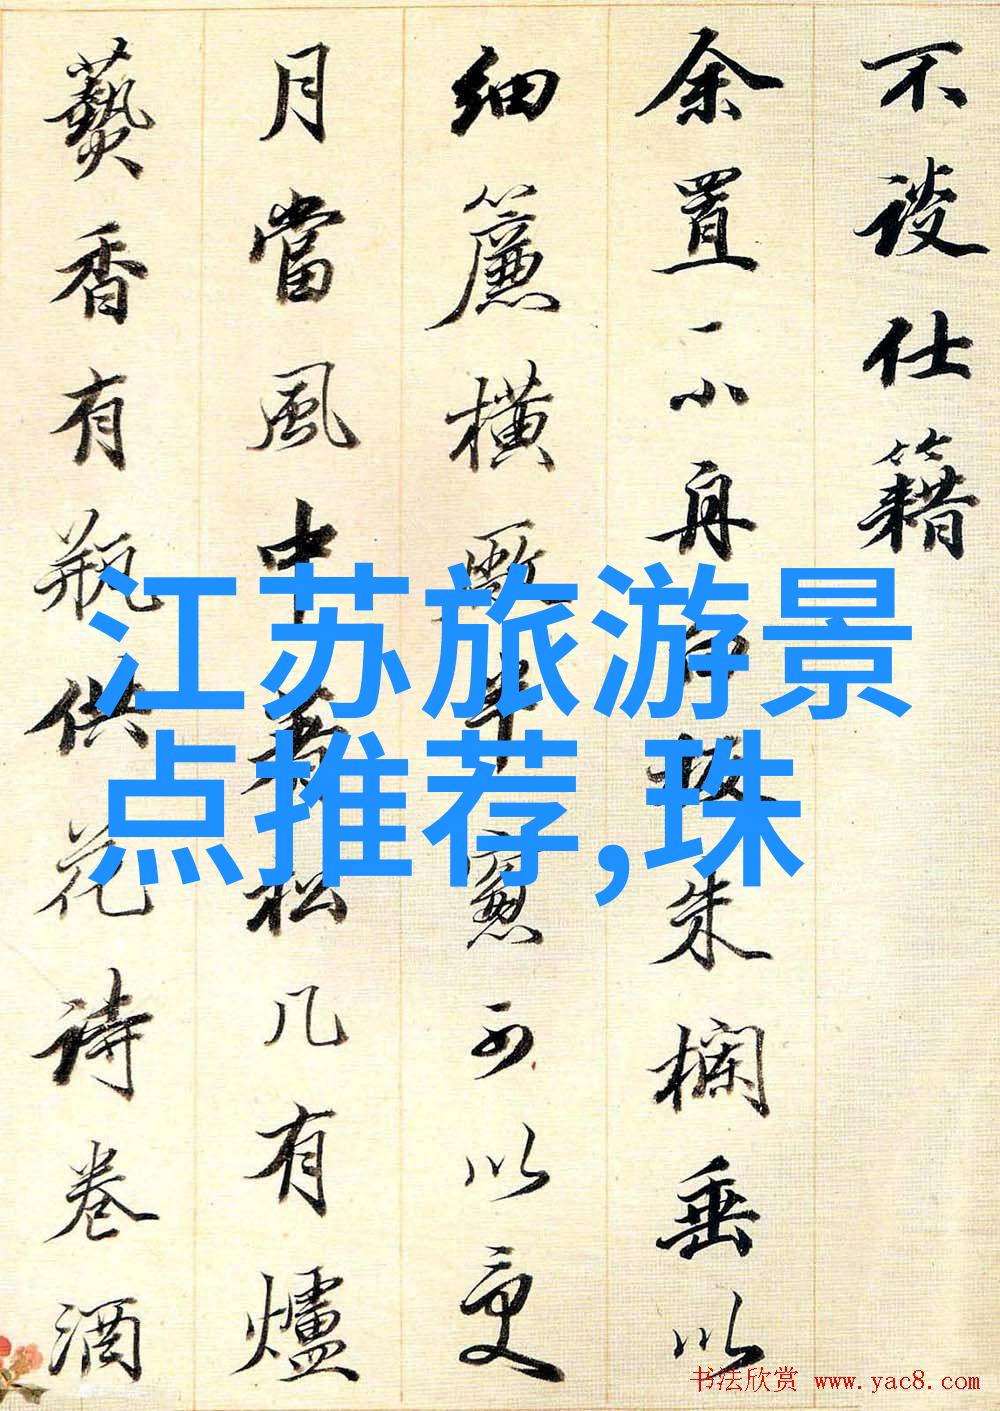 不談仕籍
余置一小舟白板朱欄垂以
細簾橫半窻可以
月當風中着松几有爐
爇香有瓶供花詩卷酒
江苏旅游景
点推荐,珠
书法欣赏 www.yac8.com